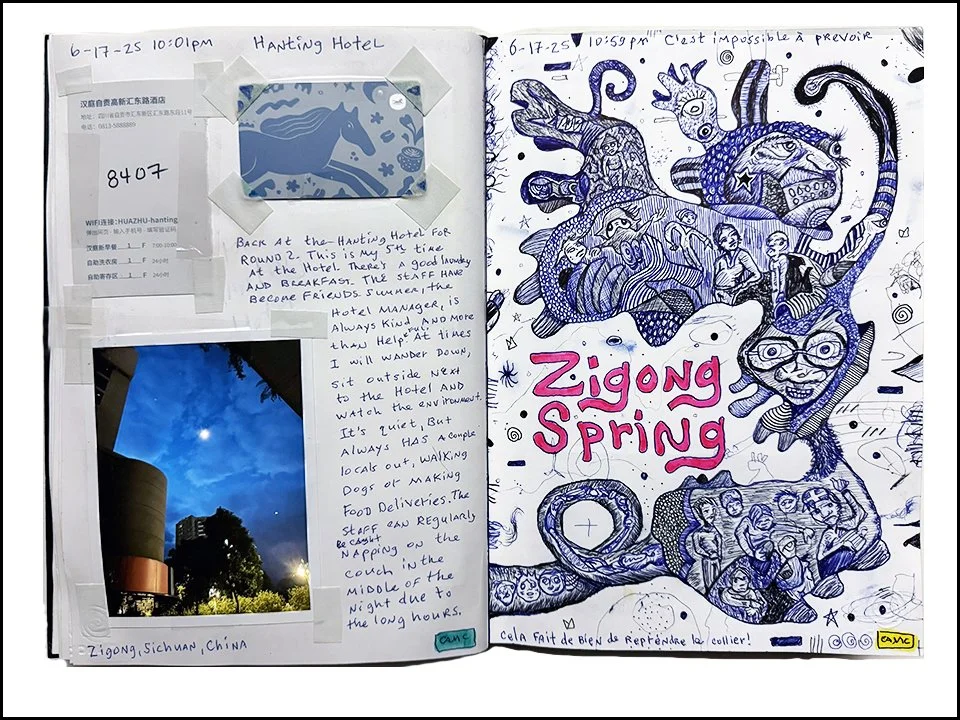 6-17-25 10:01pm Hanting Hotel
汉庭自贡高新汇东路酒店
地址：四川省自贡市汇东路东段11号
电话：0813-5888889
8407
WIFI连接:HUAZHU-hanting
弹出网页·输入手机号·填写验证码
汉庭新早餐 1 F 7:00-10:00
自助洗衣房 1 F 24小时
自助寄存区 1 F 24小时
Back at the Hanting Hotel for
Round 2. This is my 5th time
at the Hotel. There's a good laundry
and breakfast. The staff have
become friends. Summer, the
Hotel Manager, is
always kind, and more
than Helpful. At times
I will wander down,
sit outside next
to the Hotel and
watch the environment.
It's quiet, but
always has a couple
locals out, walking
Dogs or making
Food Deliveries. The
staff can regularly
be caught
napping on the
couch in the
middle of the
night due to
the long hours.
Zigong, Sichuan, China
amc
6-17-25 10:59pm C'est impossible à prevoir
Zigong
Spring
Cela fait de bien de reprendre le collier!
amc